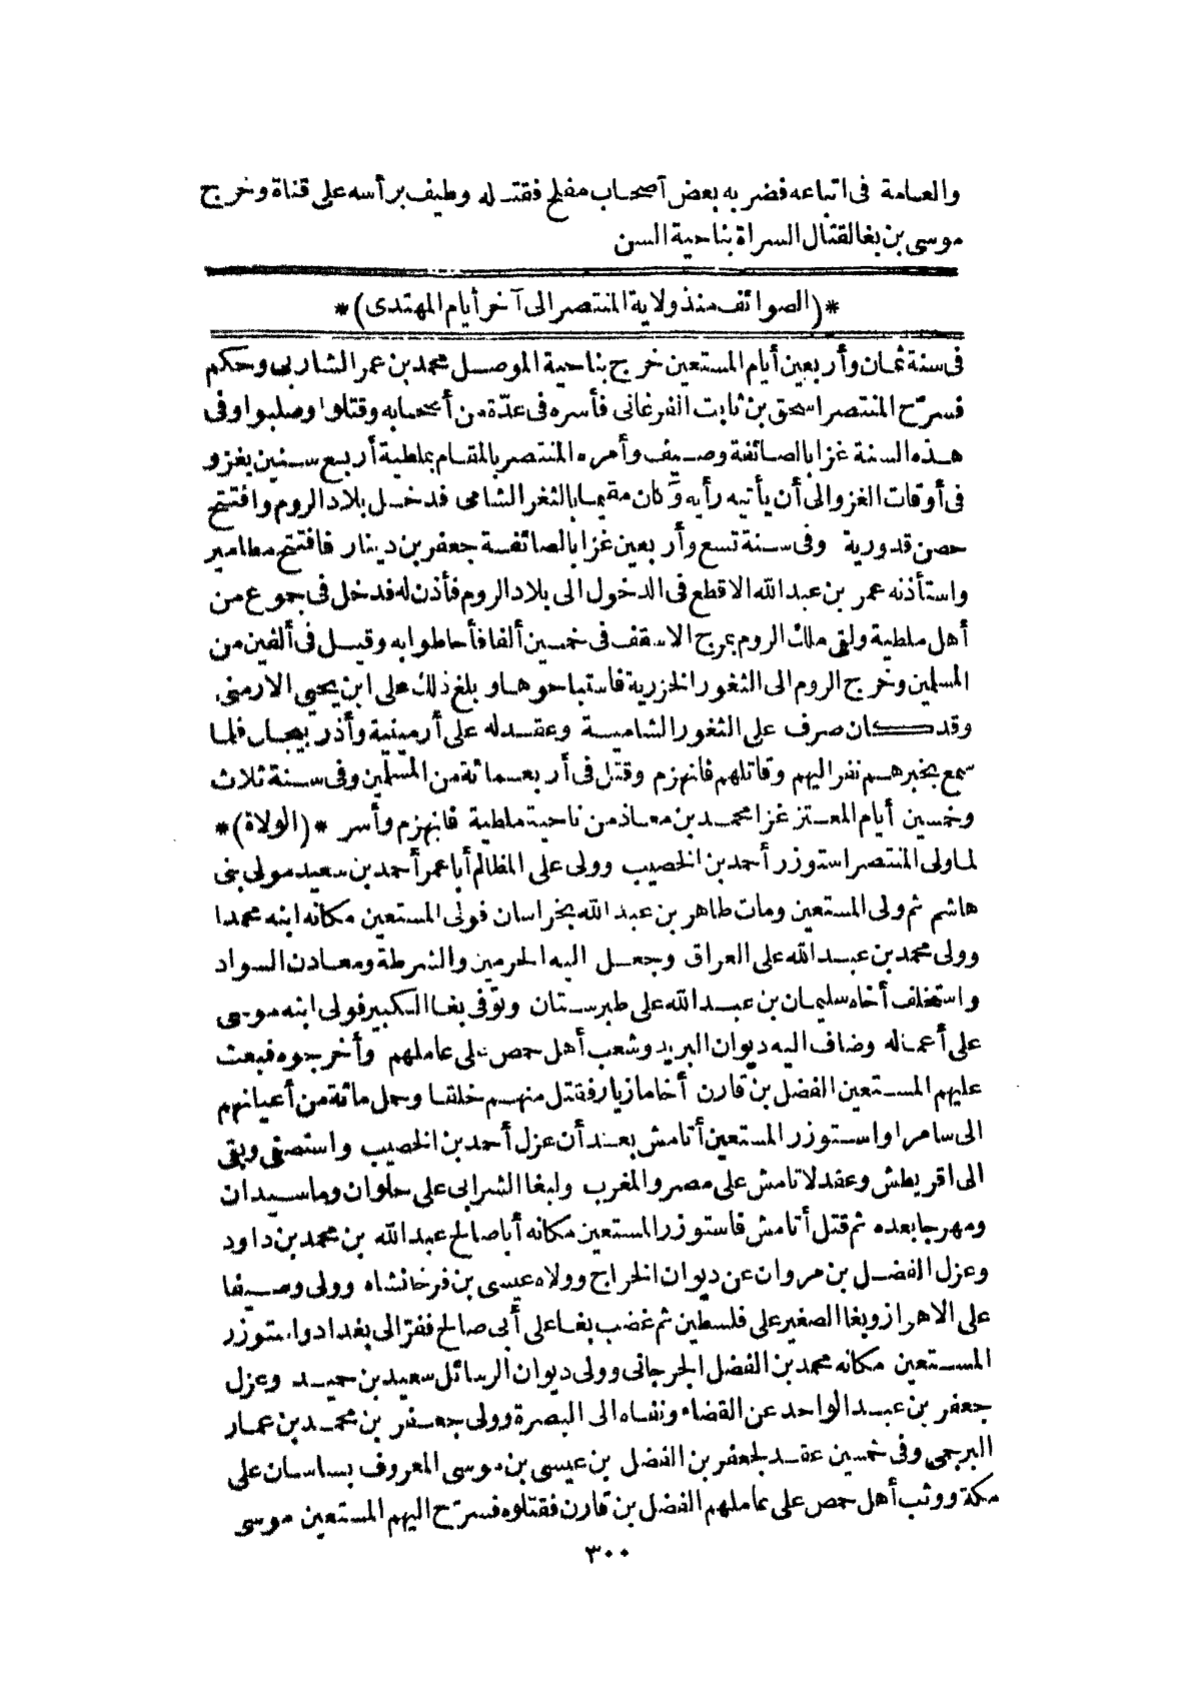 والعامة فى اتباعه فضربه بعض أصحاب مفلح فقتـله وطيف برأسه على قناة وخرج
موسى بن بغا لقتال السراة بناحية السن
*(الصوائف منذ ولاية المنتصر الى آخر أيام المهتدى)*
فى سنة ثمان وأربعين أيام المستعين خرج بناحية الموصـل محمد بن عمر الشاربى وحكم
فسرّح المنتصر اسحق بن ثابت الفرغانى فأسره فى عدّة من أصحابه وقتلوا وصلبوا وفى
هـذه السنة غزا بالصائفة وصـيف وأمره المنتصر بالمقـام بملطية أربـع سـنين يغزو
فى أوقات الغزو الى أن يأتيه رأيه وكان مقيما بالثغر الشامى فدخـل بلاد الروم وافتتح
حصن قدورية وفى سـنة تسع وأربعين غزا بالصائفـة جعفر بن دينار فافتتح مطامير
واستأذنه عمر بن عبد الله الاقطع فى الدخول الى بلاد الروم فأذن له فدخل فى جموع من
أهل ملطية ولقى ملك الروم بمرج الاسقف فى خمسين ألفا فأحاطوا به وقتـل فى ألفين من
المسلمين وخرج الروم الى الثغور الخزرية فاستباحوها وبلغ ذلك على ابن يحيى الارمنى
وقد كان صرف على الثغور الشاميـة وعقـد له على أرمينية وأذربيجـان فلما
سمع بخبرهـم نفر اليهم وقاتلهم فانهزم وقتل فى أربعـمائة من المسلمين وفى سـنة ثلاث
وخمسين أيام المعـتز غزا محمـد بن معـاذ من ناحية ملطية فانهزم وأسر *(الولاة)*
لما ولى المنتصر استوزر أحمد بن الخصيب وولى على المظالم أبا عمر أحمد بن سعيد مولى بنى
هاشم ثم ولى المستعين ومات طاهر بن عبد الله بخراسان فولى المستعين مكانه ابنه محمدا
وولى محمد بن عبـد الله على العراق وجعـل اليه الحرمين والشرطة ومعـادن السواد
واستخلف أخاه سليمان بن عبـد الله على طبرسـتان وتوفى بغـا الكبير فولى ابنه موسى
على أعمـاله وضاف اليه ديوان البريد وشعب أهل حمص على عاملهم وأخرجوه فبعث
عليهم المسـتعين الفضل بن قارن أخا مازيار فقتل منهـم خلقـا وحمل مائة من أعيانهم
الى سامرا واسـتوزر المستعين أتامش بعـد أن عزل أحمد بن الخصيب واستصفى وبقى
الى اقريطش وعقد لاتامش على مصر والمغرب ولبغا الشرابى على حلوان وماسـبذان
ومهرجا بعده ثم قتل أتامش فاستوزر المستعين مكانه أبا صالح عبد الله بن محمد بن داود
وعزل الفضـل بن مروان عن ديوان الخراج وولاه عيسى بن فرخانشاه وولى وصـيفا
على الاهواز وبغا الصغير على فلسطين ثم غضب بغـا على أبى صالح ففرّ الى بغداد واستوزر
المسـتعين مكانه محمد بن الفضل الجرجانى وولى ديوان الرسائل سعيد بن حميـد وعزل
جعفر بن عبـد الواحد عن القضاء ونفـاه الى البصرة وولى جعـفر بن محمـد بن عمـار
البرجمى وفى خمسين عقـد لجعفر بن الفضل بن عيسى بن موسى المعروف بساسان على
مكة ووثب أهل حمص على عاملهم الفضل بن قارن فقتلوه فسرّح اليهم المستعين موسى
٣٠٠